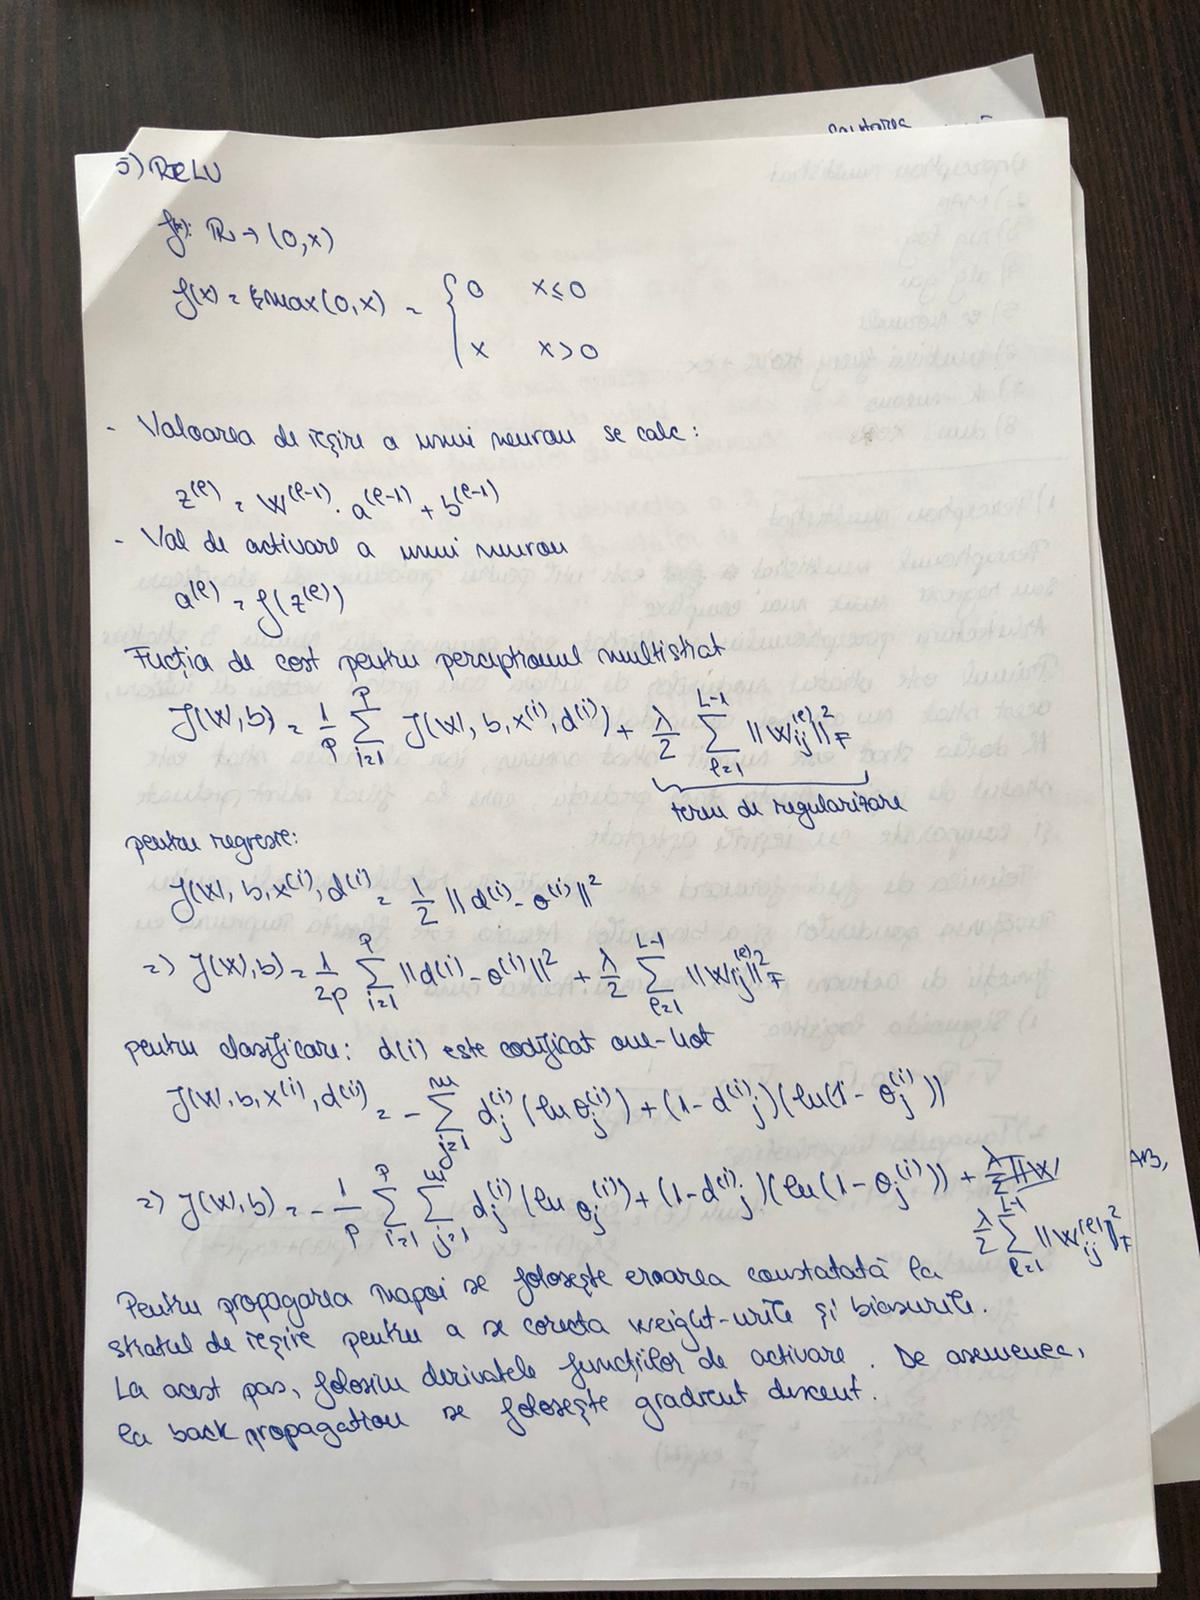 5) RELU
f(x): ℝ → (0, x)
f(x) = max(0, x) = { 0   x ≤ 0
x   x > 0
- Valoarea de ieșire a unui neuron se calc:
z^(l) = W^(l-1) · a^(l-1) + b^(l-1)
- Val de activare a unui neuron
a^(l) = f(z^(l))
Fucția de cost pentru perceptronul multistrat
J(W, b) = 1/p Σ_{i=1}^{p} J(W, b, x^(i), d^(i)) + λ/2 Σ_{l=1}^{L-1} ||W_ij^(l)||²_F
termen de regularizare
pentru regresie:
J(W, b, x^(i), d^(i)) = 1/2 ||d^(i) - o^(i)||²
=> J(W, b) = 1/2p Σ_{i=1}^{p} ||d^(i) - o^(i)||² + λ/2 Σ_{l=1}^{L-1} ||W_ij^(l)||²_F
pentru clasificare: d(i) este codificat one-hot
J(W, b, x^(i), d^(i)) = - Σ_{j=1}^{m} d_j^(i) (ln o_j^(i)) + (1 - d^(i)_j)(ln(1 - o_j^(i)))
=> J(W, b) = - 1/p Σ_{i=1}^{p} Σ_{j=1}^{m} d_j^(i) (ln o_j^(i)) + (1 - d^(i)_j)(ln(1 - o_j^(i))) +
λ/2 Σ_{l=1}^{L-1} ||W_ij^(l)||²_F
Pentru propagarea înapoi se folosește eroarea constatată la
stratul de ieșire pentru a se corecta weight-urile și biasurile.
La acest pas, folosim derivatele funcțiilor de activare. De asemenea,
la back propagation se folosește gradient descent.